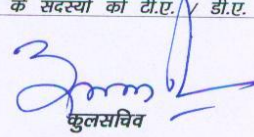 के सदस्यों को टी.ए. / डी.ए.
कुलसचिव